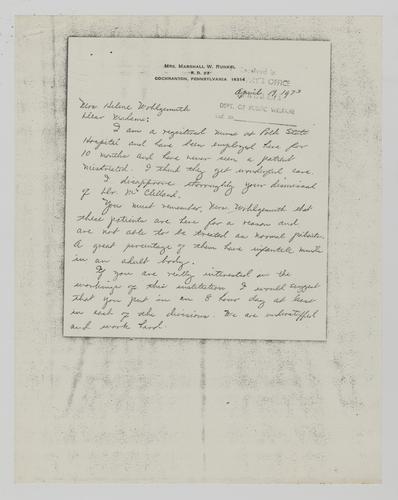 MRS. MARSHALL W. RUNKEL
R. D. #3
COCHRANTON, PENNSYLVANIA 16314
Received in
OFFICE
DEPT. OF PUBLIC WELFARE
April 17, 1973
Mrs Helene Wohlgemuth
Dear Madame:
I am a registered nurse at Polk State
Hospital and have been employed here for
10 months and have never seen a patient
mistreated. I think they get wonderful care.
I disapprove thoroughly your dismissal
of Dr. McClelland.
You must remember, Mrs. Wohlgemuth that
these patients are here for a reason and
are not able to be treated as normal patients.
A great percentage of them have infantile minds
in an adult body.
If you are really interested in the
workings of this institution I would suggest
that you put in an 8 hour day at least
in each of the divisions. We are understaffed
and work hard.